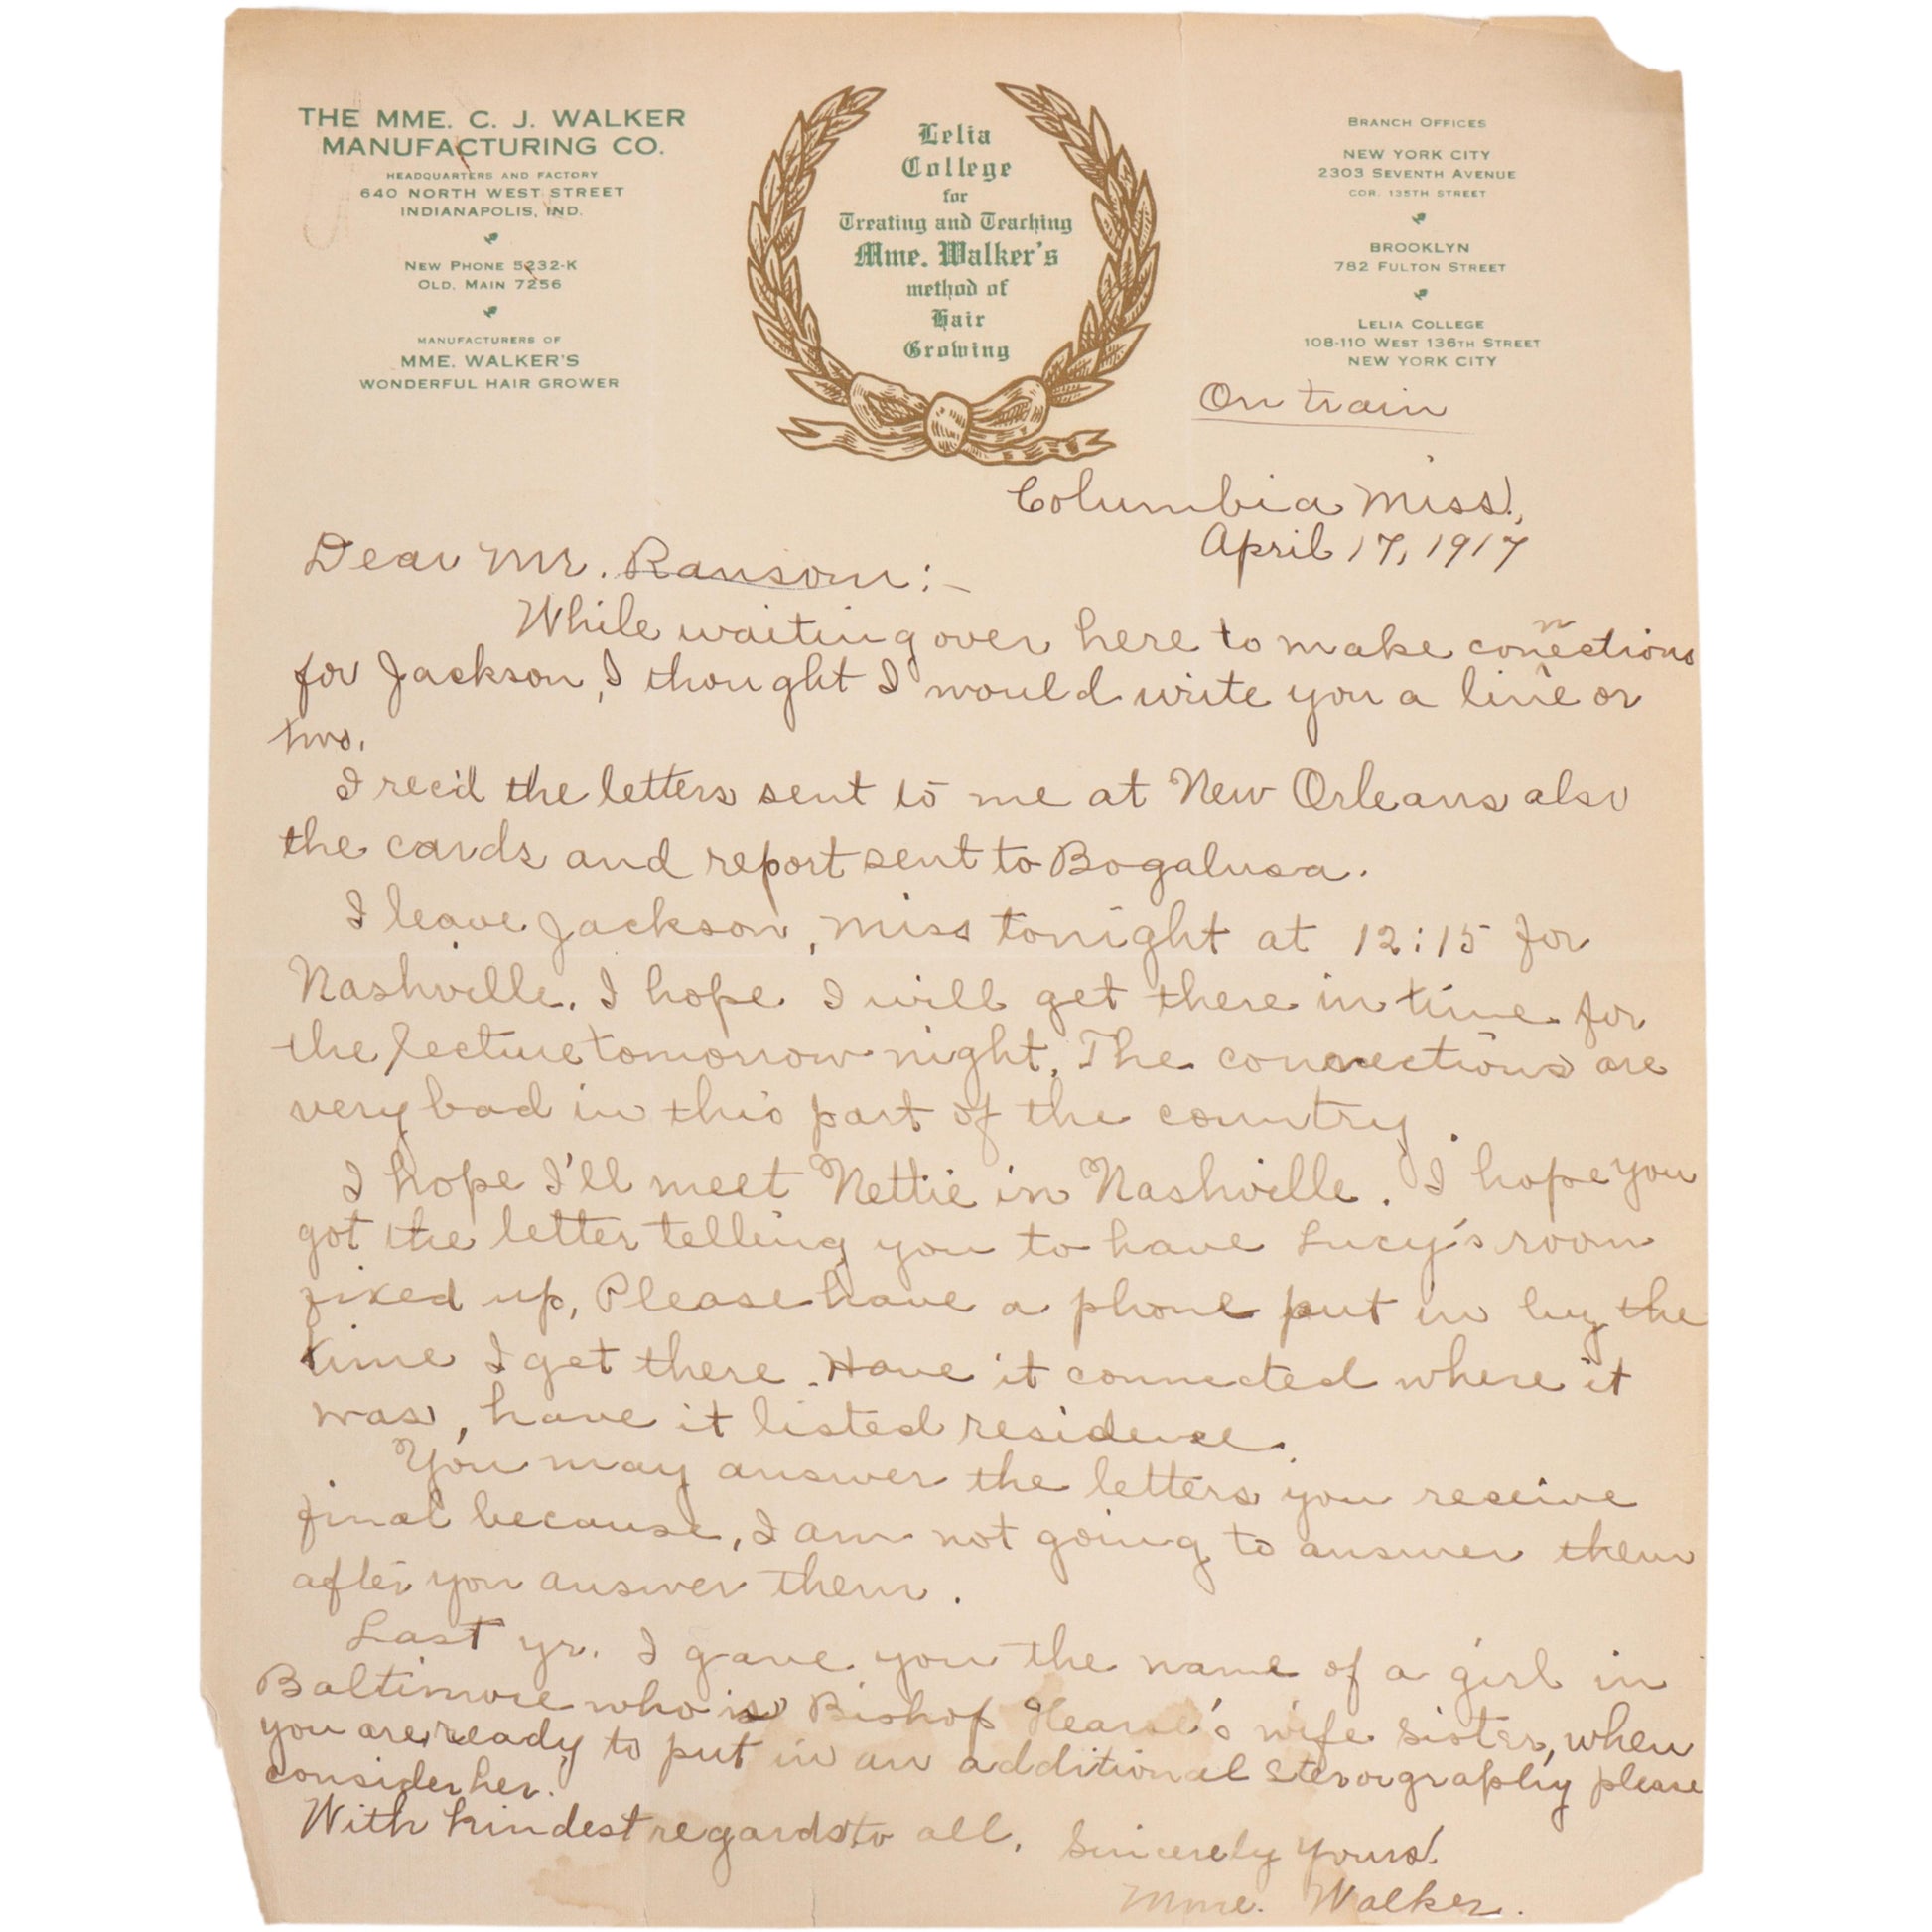 THE MME. C. J. WALKER
MANUFACTURING CO.
HEADQUARTERS AND FACTORY
640 NORTH WEST STREET
INDIANAPOLIS, IND.
NEW PHONE 5232-K
OLD. MAIN 7256
MANUFACTURERS OF
MME. WALKER'S
WONDERFUL HAIR GROWER
Lelia
College
for
Treating and Teaching
Mme. Walker's
method of
Hair
Growing
BRANCH OFFICES
NEW YORK CITY
2303 SEVENTH AVENUE
COR. 135TH STREET
BROOKLYN
782 FULTON STREET
LELIA COLLEGE
108-110 WEST 136TH STREET
NEW YORK CITY
On train
Columbia Miss.,
April 17, 1917
Dear Mr. Ransom:-
While waiting over here to make connections
for Jackson, I thought I would write you a line or
two.
I rec'd the letters sent to me at New Orleans also
the cards and report sent to Bogalusa.
I leave Jackson, Miss tonight at 12:15 for
Nashville. I hope I will get there in time for
the lecture tomorrow night. The connections are
very bad in this part of the country.
I hope I'll meet Nettie in Nashville. I hope you
got the letter telling you to have Lucy's room
fixed up, Please have a phone put in by the
time I get there. Have it connected where it
was, have it listed residence.
You may answer the letters you receive
final because, I am not going to answer them
after you answer them.
Last yr. I gave you the name of a girl in
Baltimore who is Bishop wife sister, when
you are ready to put in an additional please
consider her.
With kindest regards to all. Sincerely Yours.
Mme. Walker.